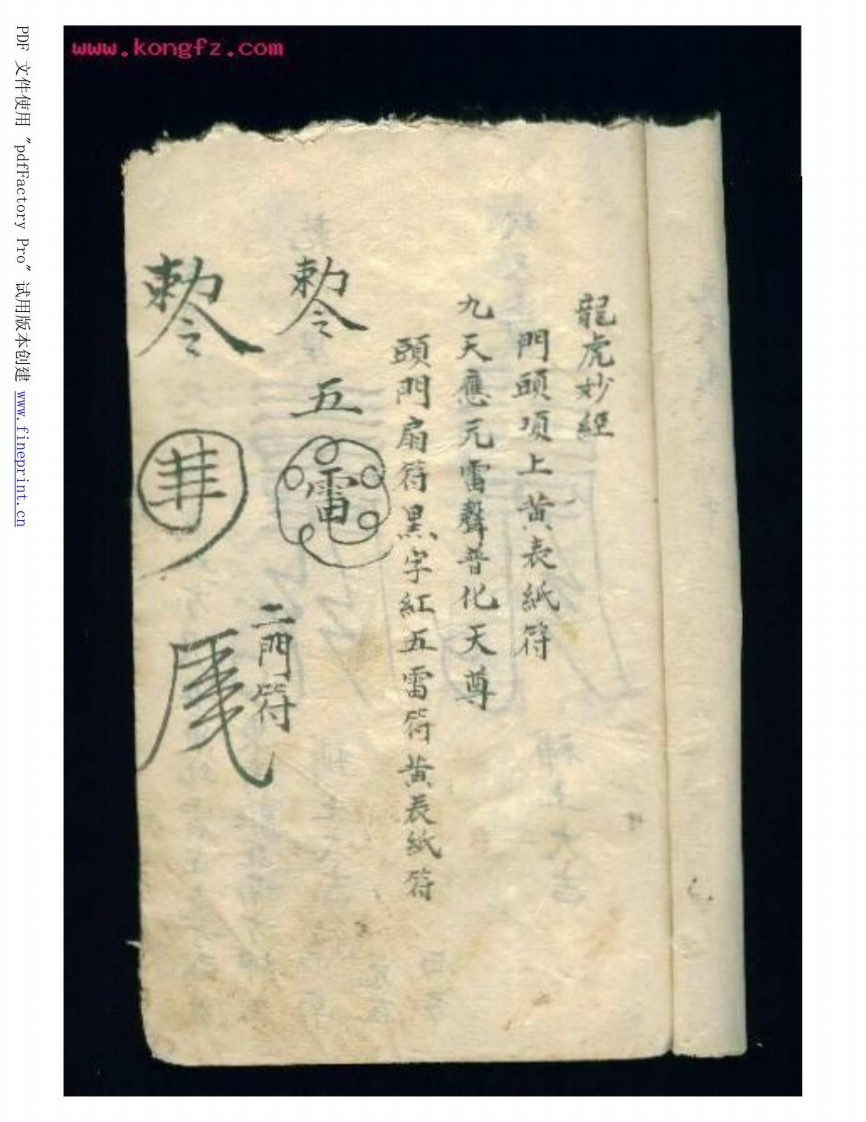 www.kongfz.com
龍虎妙經
門頭項上黃表紙符
九天應元雷聲普化天尊
頭門扇符黑字紅五雷符黃表紙符
敕令
五
雷
二門符
敕令
PDF 文件使用 "pdfFactory Pro" 试用版本创建 www.fineprint.cn